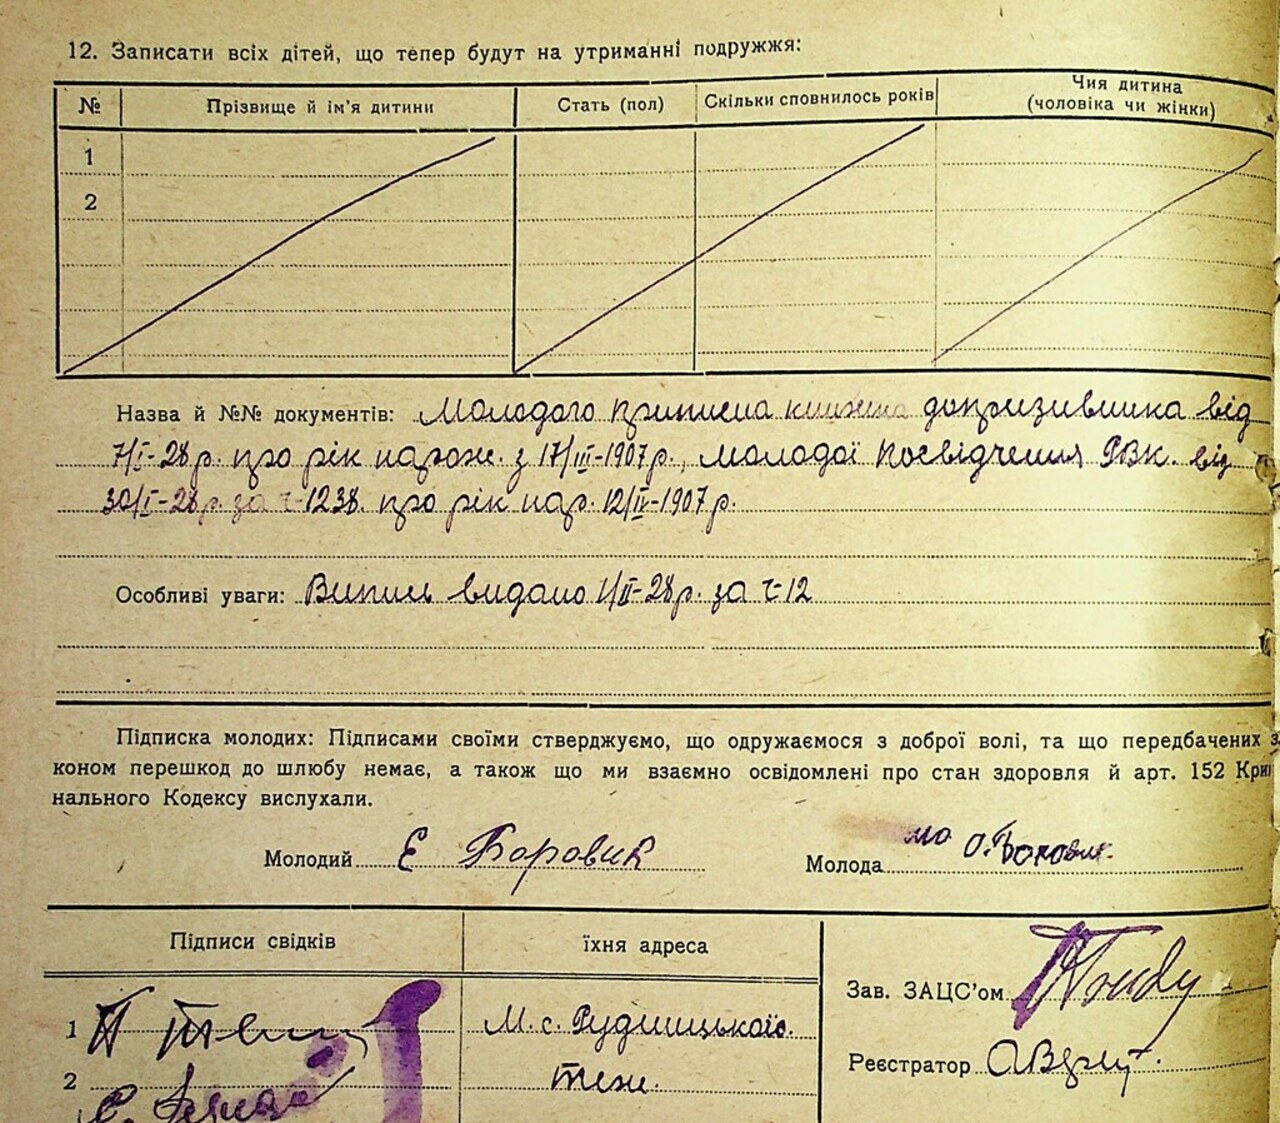 12. Записати всіх дітей, що тепер будут на утриманні подружжя:
№ Прізвище й ім'я дитини Стать (пол) Скільки сповнилось років Чия дитина (чоловіка чи жінки)
1
2
Назва й №№ документів: Молодого приписна книжка допризивника від
7/I-28 р. про рік нарож. з 17/III-1907 р., молодої посвідчення РВК. від
30/I-28 р. за ч-1238. про рік нар. 12/IV-1907 р.
Особливі уваги: Випись видано 1/II-28 р. за ч-12
Підписка молодих: Підписами своїми стверджуємо, що одружаємося з доброї волі, та що передбачених за
коном перешкод до шлюбу немає, а також що ми взаємно освідомлені про стан здоровля й арт. 152 Кримі
нального Кодексу вислухали.
Молодий Є Боровик Молода О. Боровик
Підписи свідків їхня адреса
Зав. ЗАЦС'ом
1 М. с. Рудницького.
Реєстратор
2 теж.